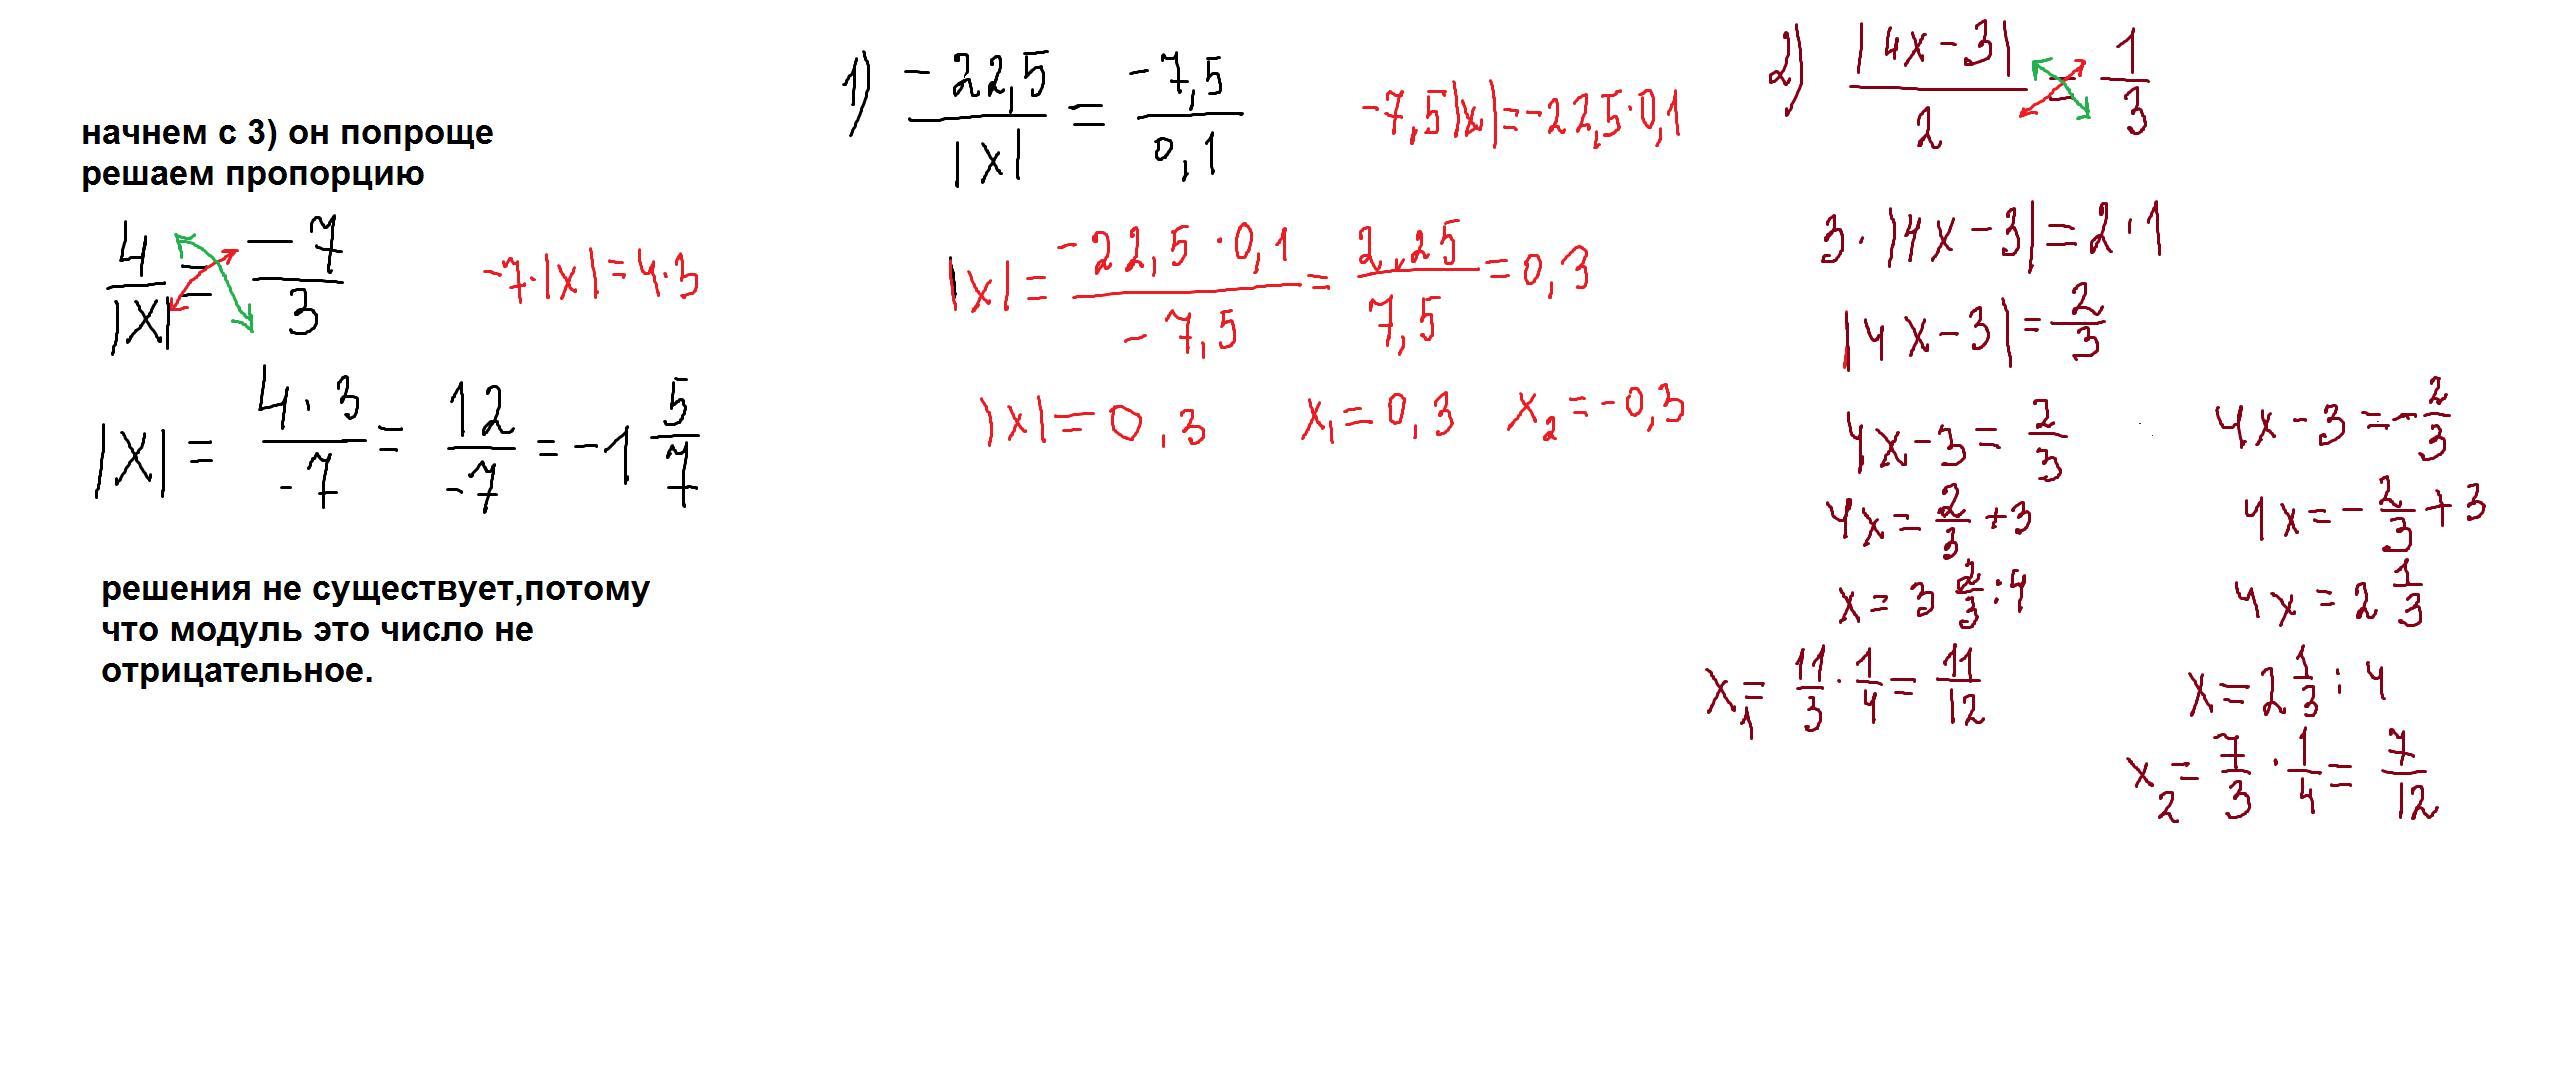 начнем с 3) он попроще
решаем пропорцию
4/|x| = -7/3
-7·|x|=4·3
|x| = 4·3/-7 = 12/-7 = -1 5/7
решения не существует,потому
что модуль это число не
отрицательное.
1) -22,5/|x| = -7,5/0,1
-7,5|x|=-22,5·0,1
|x| = -22,5·0,1/-7,5 = 2,25/7,5 = 0,3
|x|=0,3 x₁=0,3 x₂=-0,3
2) |4x-3|/2 = 1/3
3·|4x-3|=2·1
|4x-3|=2/3
4x-3=2/3
4x=2/3+3
x=3 2/3:4
x₁=11/3·1/4=11/12
4x-3=-2/3
4x=-2/3+3
4x=2 1/3
x=2 1/3:4
x₂=7/3·1/4=7/12